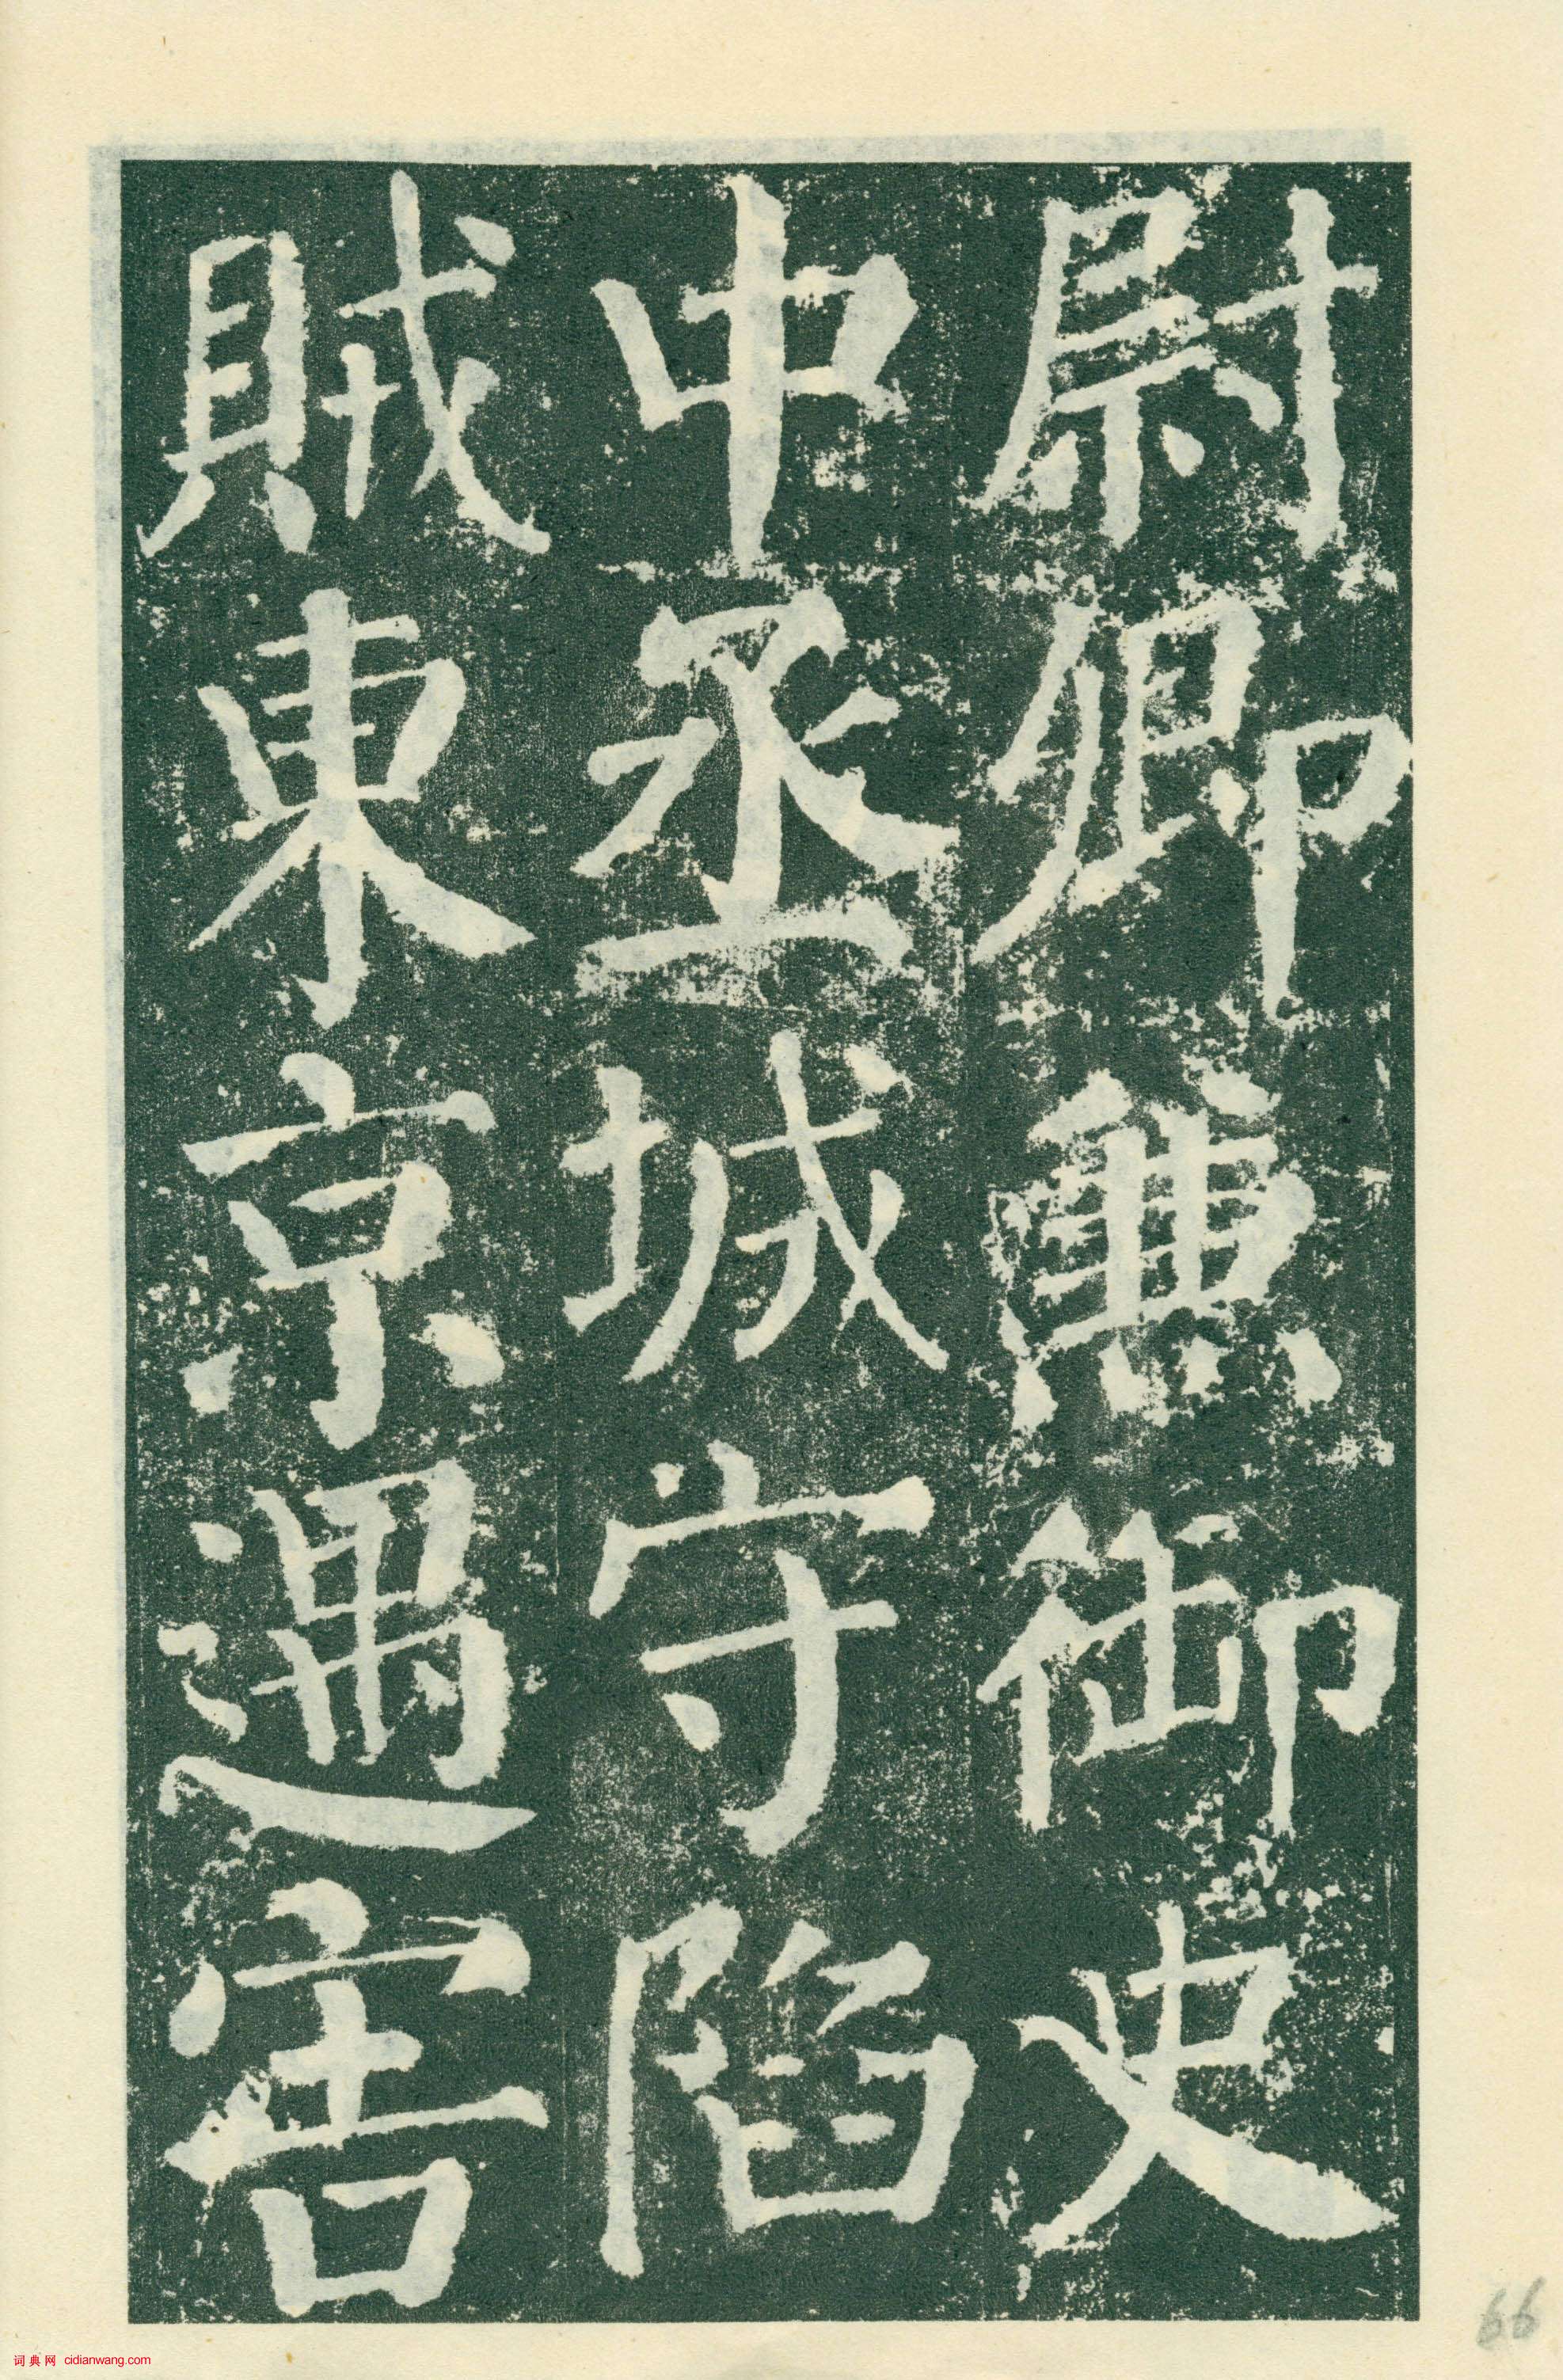 尉卿兼御史
中丞城守陷
賊東京遇害
66
词典网 cidianwang.com